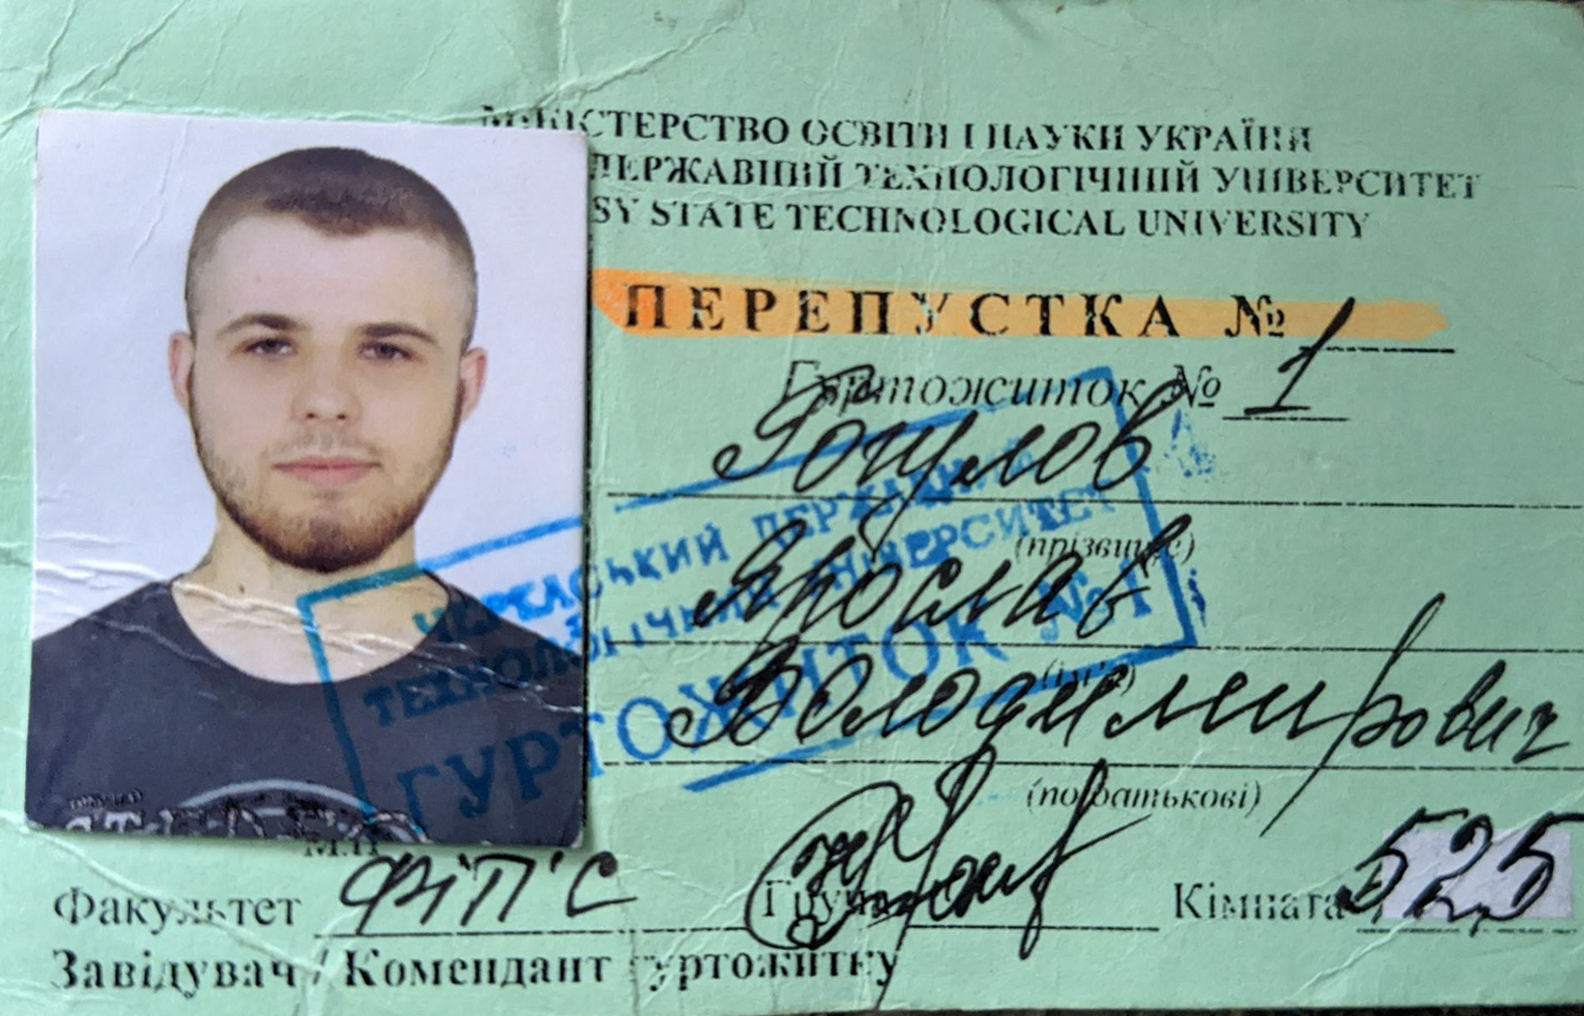 МІНІСТЕРСТВО ОСВІТИ І НАУКИ УКРАЇНИ
ДЕРЖАВНИЙ ТЕХНОЛОГІЧНИЙ УНІВЕРСИТЕТ
SY STATE TECHNOLOGICAL UNIVERSITY
ПЕРЕПУСТКА № 1
Гуртожиток № 1
(прізвище)
Ярослав
(ім'я)
Володимирович
(по батькові)
ЧЕРКАСЬКИЙ ДЕРЖАВНИЙ
ТЕХНОЛОГІЧНИЙ УНІВЕРСИТЕТ
ГУРТОЖИТОК №1
М.П
Факультет ФІТІС Група Кімната 525
Завідувач / Комендант гуртожитку